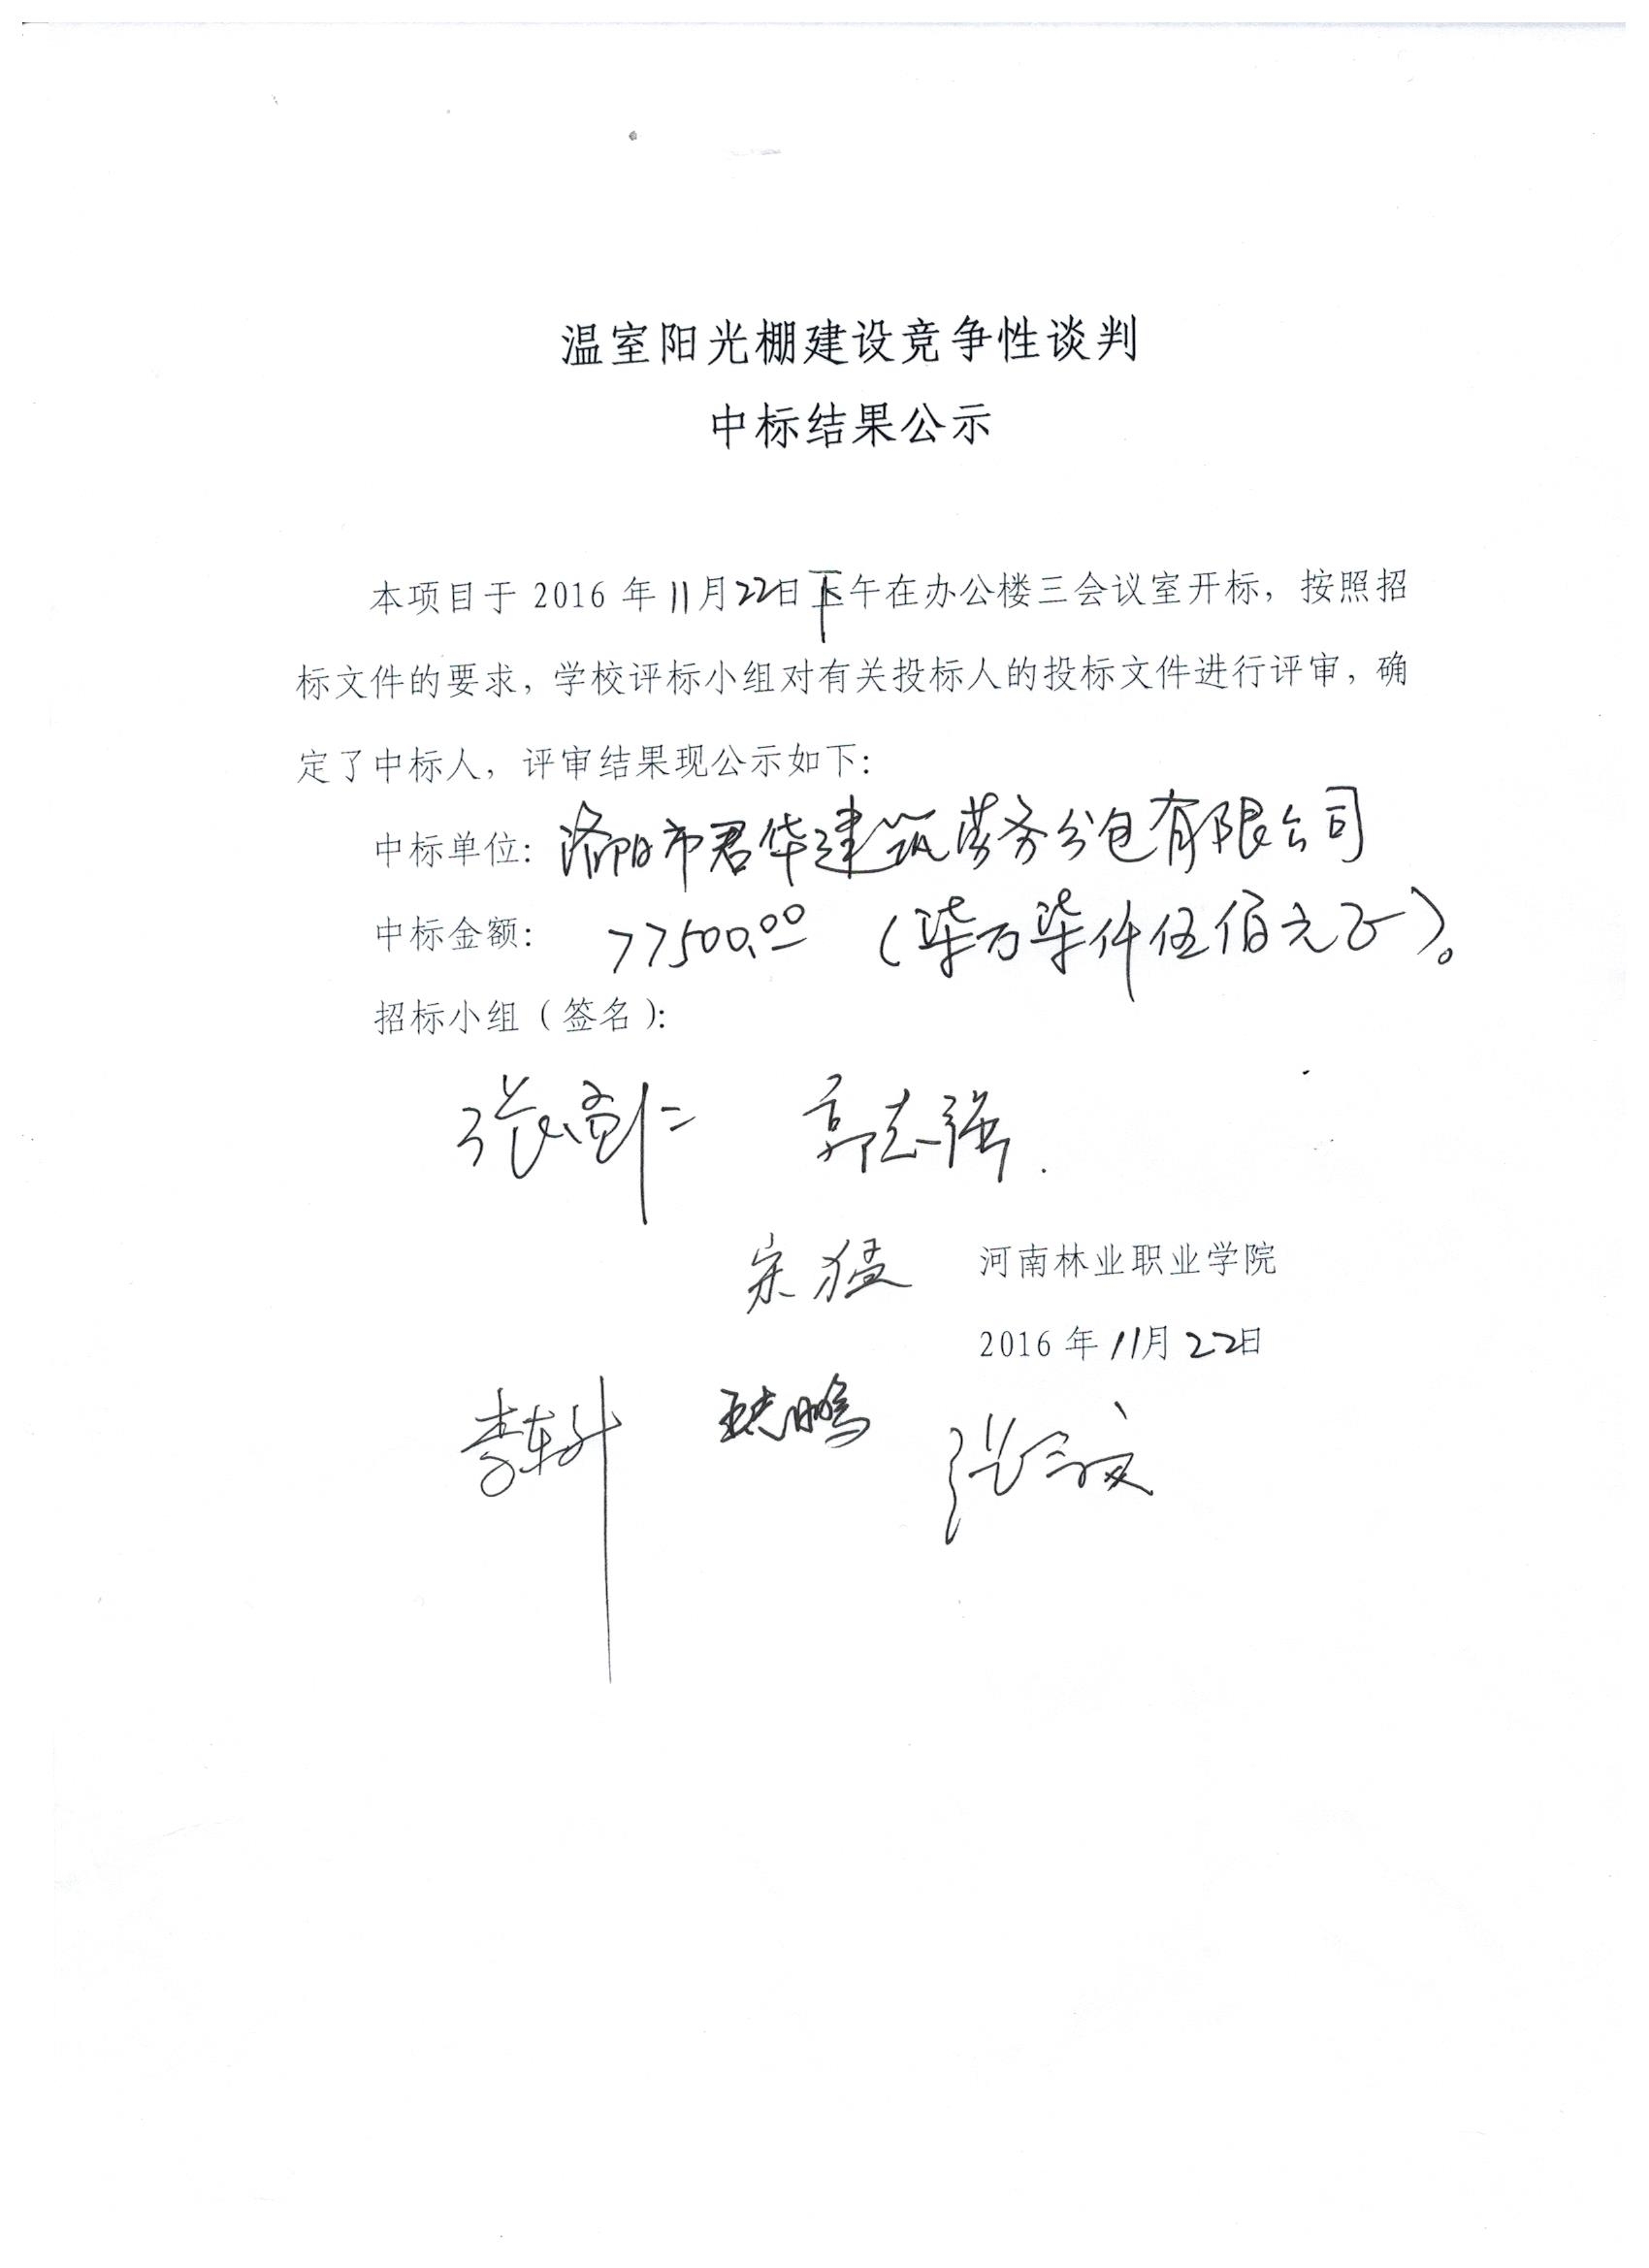 温室阳光棚建设竞争性谈判
中标结果公示
本项目于 2016 年 11月22日下午在办公楼三会议室开标，按照招
标文件的要求，学校评标小组对有关投标人的投标文件进行评审，确
定了中标人，评审结果现公示如下：
中标单位：洛阳市君华建筑劳务分包有限公司
中标金额： 77500.00 （柒万柒仟伍佰元正）。
招标小组（签名）：
郭志强
宋猛 河南林业职业学院
2016 年 11月 22日
李东升